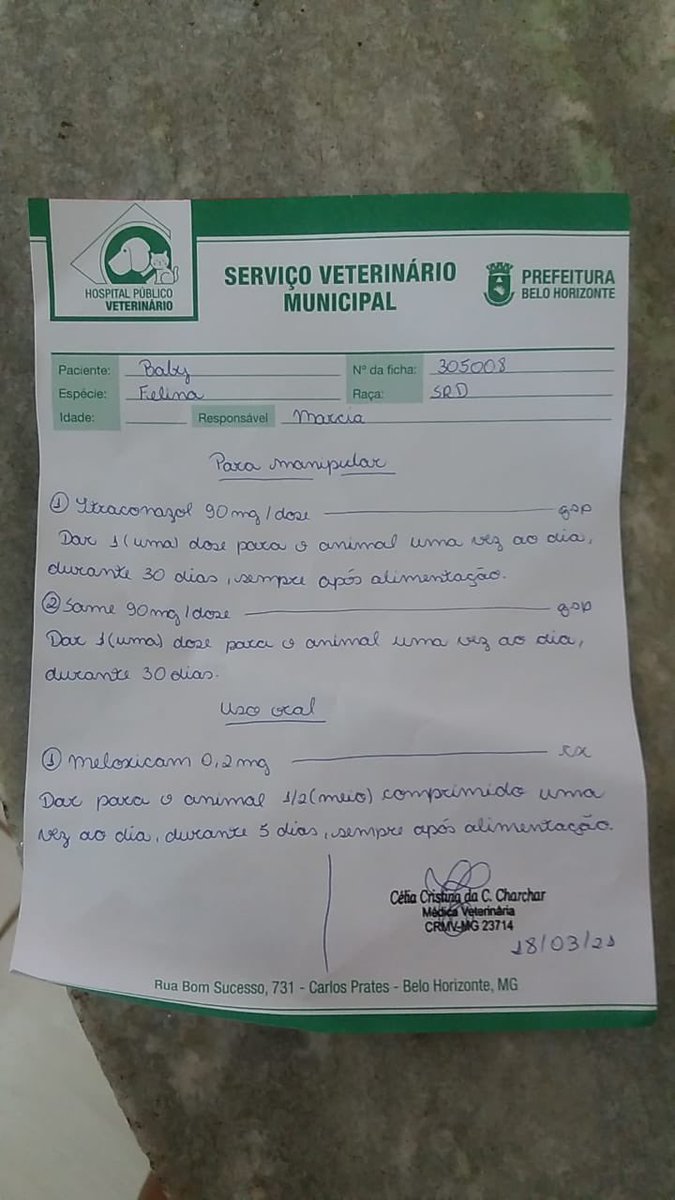 HOSPITAL PÚBLICO
VETERINÁRIO
SERVIÇO VETERINÁRIO
MUNICIPAL
PREFEITURA
BELO HORIZONTE
Paciente: Baby Nº da ficha: 305008
Espécie: Felina Raça: SRD
Idade: Responsável Marcia
Para manipular
① Itraconazol 90mg/dose qsp
Dar 1 (uma) dose para o animal uma vez ao dia,
durante 30 dias, sempre após alimentação.
② Same 90mg/dose qsp
Dar 1 (uma) dose para o animal uma vez ao dia,
durante 30 dias.
Uso oral
① Meloxicam 0,2mg cx
Dar para o animal 1/2 (meio) comprimido uma
vez ao dia, durante 5 dias, sempre após alimentação.
Célia Cristina da C. Charchar
Médica Veterinária
CRMV-MG 23714
18/03/21
Rua Bom Sucesso, 731 - Carlos Prates - Belo Horizonte, MG